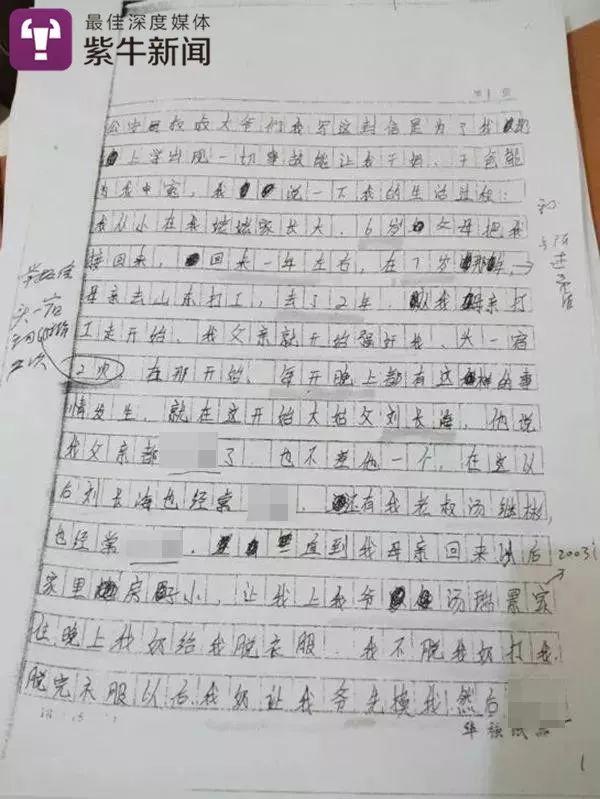 最佳深度媒体
紫牛新闻
公安 叔叔大爷们我写这封信是为了我
上学出现一切事故能让我干妈、干爸能
为我申冤,我 说一下我的生活过程:
我从小在我 家长大,6岁 父母把我
接回来, 回来一年左右,在7岁那年,
母亲去山东打工,去了2年. 从我母亲打
工走开始,我父亲就开始强奸我、头一宿
2次,在那开始,每 晚上都有这样的事
情发生,就在这开始大姑父刘长海,他说
我父亲都 了,也不差他一个,在这以
后刘长海也经常 , 还有我老叔汤继彬,
也经常 , 直到我母亲回来以后
2003
家里 房 小,让我上我爷 汤瑞景家
住,晚上我奶给我脱衣服,我不脱我奶打我.
脱完衣服以后我奶让我爷先摸我然后
1